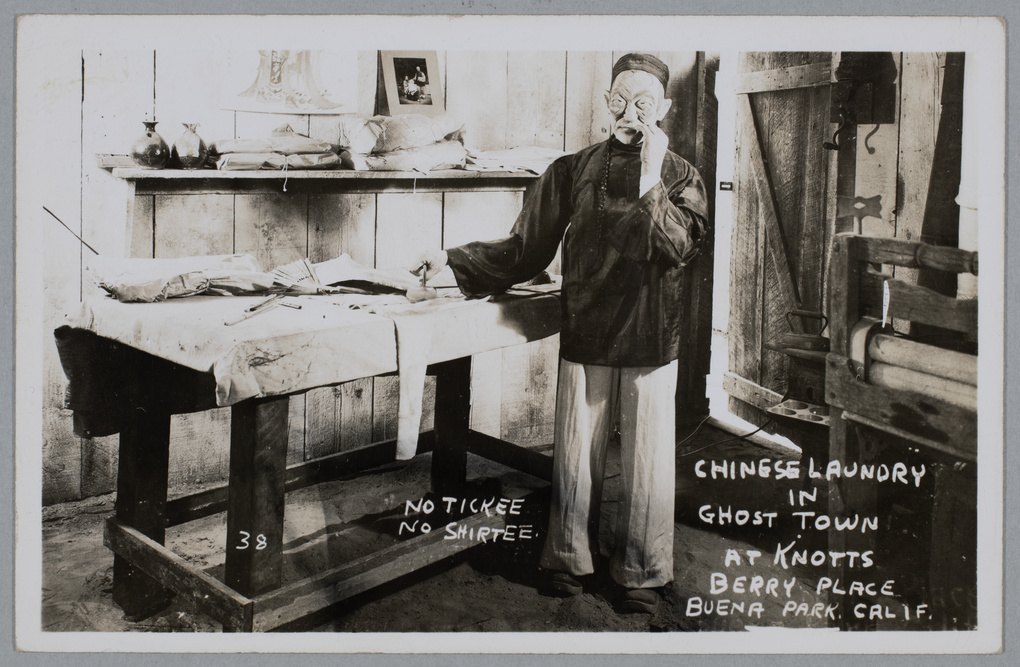 NO TICKEE
NO SHIRTEE.
38
CHINESE LAUNDRY
IN
GHOST TOWN
AT KNOTTS
BERRY PLACE
BUENA PARK. CALIF.